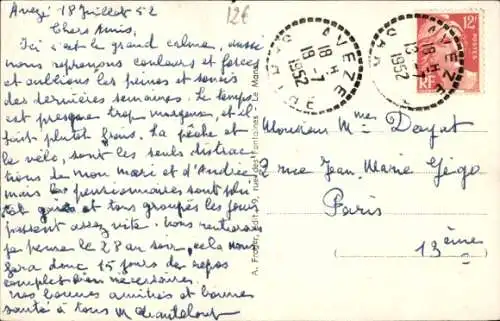 Avezé 18 Juillet 52
Chers Amis,
Ici c'est le grand calme, aussi
nous reprenons couleurs et forces
et oublions les peines et soucis
des dernières semaines. Le temps
est presque trop magnifique et il
fait plutôt frais. La pêche et
le vélo, sont les seuls distrac
tions de mon mari et d'André
mais les pensionnaires sont
et tous groupés les jours
passent assez vite. Nous rentrerons
je pense le 28 au soir, cela nous
fera donc 15 jours de repos
complet bien nécessaires.
Nos bonnes amitiés et bonne
santé à tous M Chantelout
12€
AVEZE
18 H
18 -7
1952
SARTHE
AVEZE
18 H
18 -7
1952
12F
POSTES
RF
A. Frager, édit., 9, rue des Fontaines - Le Mans
Monsieur Mme Deyat
rue Jean Marie Jégo
Paris
13ème